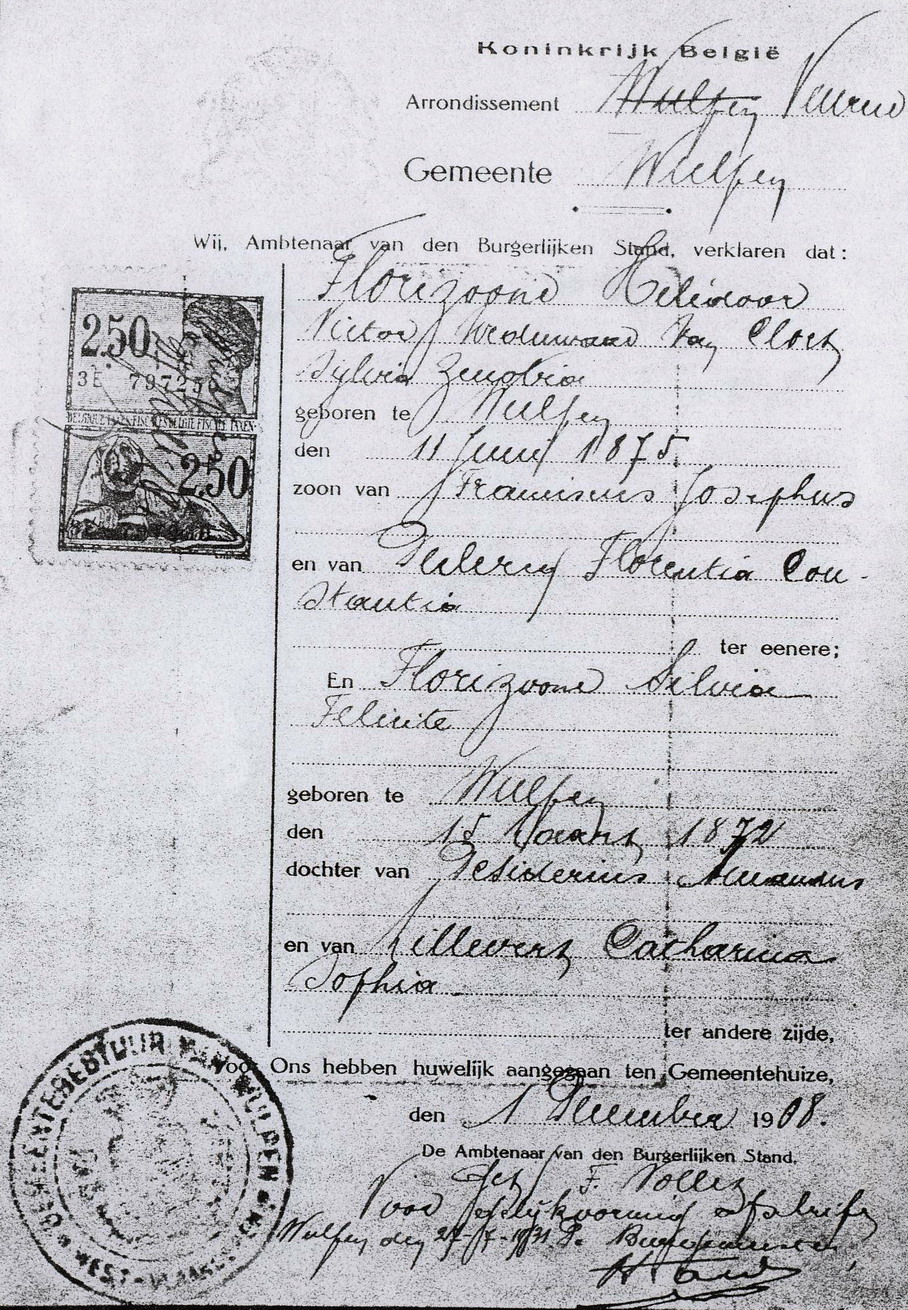 Koninkrijk België
Arrondissement Wulpen Veurne
Gemeente Wulpen
Wij, Ambtenaar van den Burgerlijken Stand, verklaren dat:
Florizoone Heliodoor
Victor Weduwaar Van Cloet
Sylvia Zenobia
2.50
3E 797250
2.50
geboren te Wulpen
den 11 Juni 1875
zoon van Franciscus Josephus
en van Florentia Con-
stantia
ter eenere;
En Florizoone Silvia
Felicite
geboren te Wulpen
den 15 Maart 1872
dochter van Desiderius Amandus
en van Lillevert Catharina
Sophia
ter andere zijde,
Voor Ons hebben huwelijk aangegaan ten Gemeentehuize,
den 1 December 1908.
De Ambtenaar van den Burgerlijken Stand,
Get F.
Voor gelijkvormig afschrift
Wulpen den Burgemeester
GEMEENTEBESTUUR VAN WULPEN
WEST-VLAANDEREN